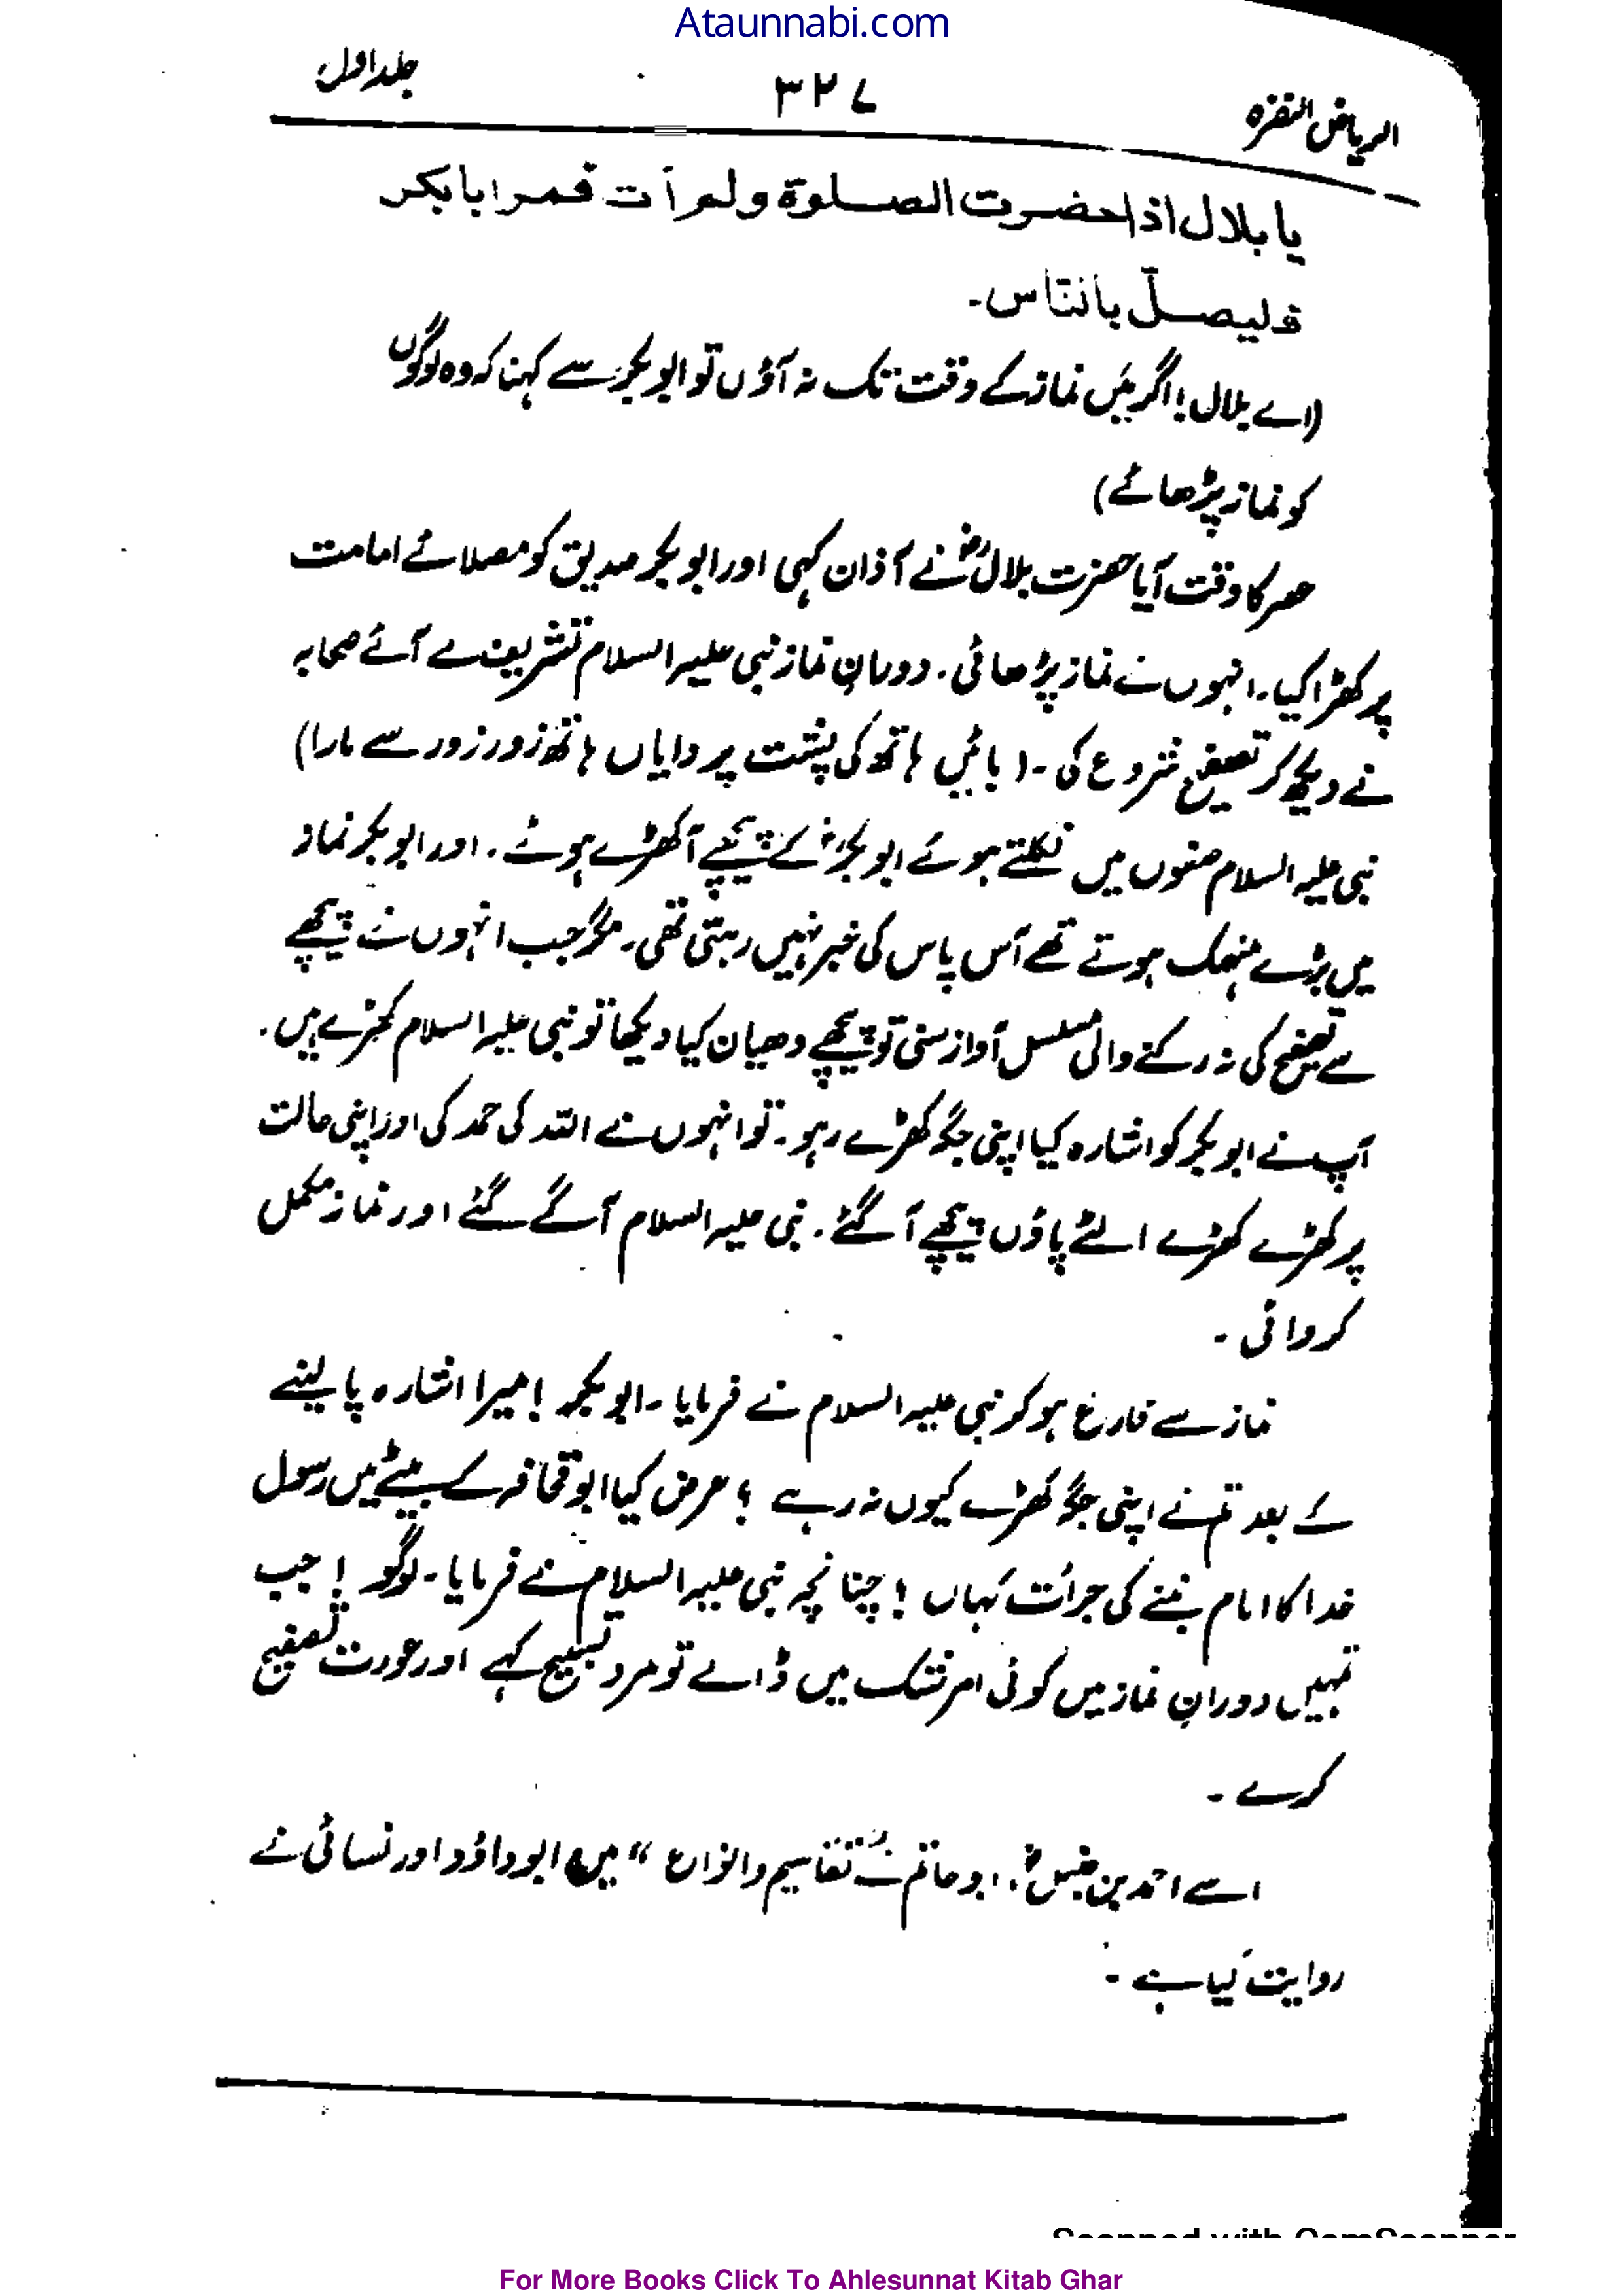 Ataunnabi.com
الریاض النضرہ ۳۲۷ جلد اول
یا بلال اذا حضرت الصلوۃ ولم آت فمر ابا بکر
فلیصل بالناس۔
(اے بلال! اگر میں نماز کے وقت تک نہ آؤں تو ابو بکر سے کہنا کہ وہ لوگوں
کو نماز پڑھائے)
عصر کا وقت آیا حضرت بلالؓ نے آذان کہی اور ابو بکر صدیق کو مصلائے امامت
پر کھڑا کیا۔ انہوں نے نماز پڑھائی۔ دوران نماز نبی علیہ السلام تشریف لے آئے صحابہ
نے دیکھ کر تصفیح شروع کی۔ (بائیں ہاتھ کی پشت پر دایاں ہاتھ زور زور سے مارا)
نبی علیہ السلام صفوں میں نکلتے ہوئے ابو بکرؓ کے پیچھے آکھڑے ہوئے۔ اور ابو بکر نماز
میں بڑے منہمک ہوتے تھے آس پاس کی خبر نہیں رہتی تھی۔ مگر جب انہوں نے پیچھے
سے تصفیح کی نہ رکنے والی مسلسل آواز سنی تو پیچھے دھیان کیا دیکھا تو نبی علیہ السلام کھڑے ہیں۔
آپ نے ابو بکر کو اشارہ کیا اپنی جگہ کھڑے رہو۔ تو انہوں نے اللہ کی حمد کی اور اپنی حالت
پر کھڑے کھڑے الٹے پاؤں پیچھے آ گئے۔ نبی علیہ السلام آگے گئے اور نماز مکمل
کروائی۔
نماز سے فارغ ہو کر نبی علیہ السلام نے فرمایا۔ ابو بکر! میرا اشارہ پا لینے
کے بعد تم نے اپنی جگہ کھڑے کیوں نہ رہے؟ عرض کیا ابو قحافہ کے بیٹے میں رسول
خدا کا امام بننے کی جرأت کہاں! چنانچہ نبی علیہ السلام نے فرمایا۔ لوگو! جب
تمہیں دوران نماز میں کوئی امر شک میں ڈالے تو مرد تسبیح کہے اور عورت تصفیح
کرے۔
اسے احمد بن حنبلؒ، ابو حاتم نے تقاسیم والانواع" میں ابو داؤد اور نسائی نے
روایت کیا ہے۔
Scanned with CamScanner
For More Books Click To Ahlesunnat Kitab Ghar